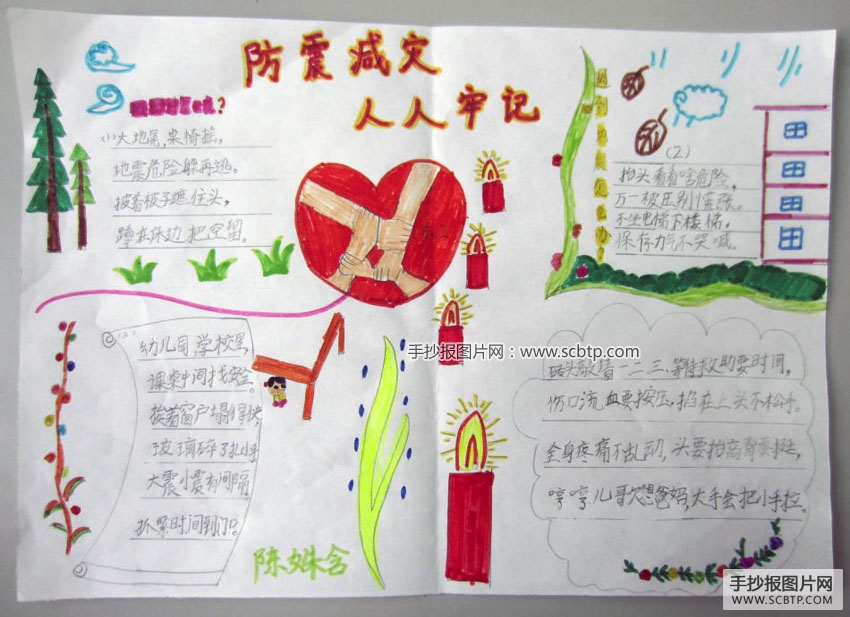 防震减灾
人人牢记
(1)大地晃,桌椅摇,
地震危险躲再逃。
披着被子遮住头,
蹲在床边把空留。
遇到地震怎么办?
(2)
抬头看看啥危险,
万一被压别慌张。
不坐电梯下楼梯,
保存力气不哭喊。
幼儿园学校里,
课桌中间找安全。
挨着窗户塌得快,
玻璃碎了扎小手
大震小震有间隔
抓紧时间到门口。
手抄报图片网:www.scbtp.com
砖头敲墙一二三,等待救助要时间,
伤口流血要按压,掐在上头不松手。
全身疼痛不乱动,头要抬高背要挺,
哼哼儿哥次想爸妈,大手会把小手拉。
陈姝含
手抄报图片网
WWW.SCBTP.COM